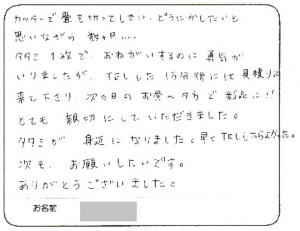 カッターで畳を切ってしまい、どうにかしたいと
思いながら 数ヶ月.....
タタミ1枚で、おねがいするのに勇気が
いりましたが、TELした15分後には見積りに
来て下さり 次の日のお昼〜夕方で新品に!!
とても 親切にしていただきました。
タタミが 身近になりました。早くTELしたらよかった。
次も、お願いしたいです。
ありがとうございました。
お名前